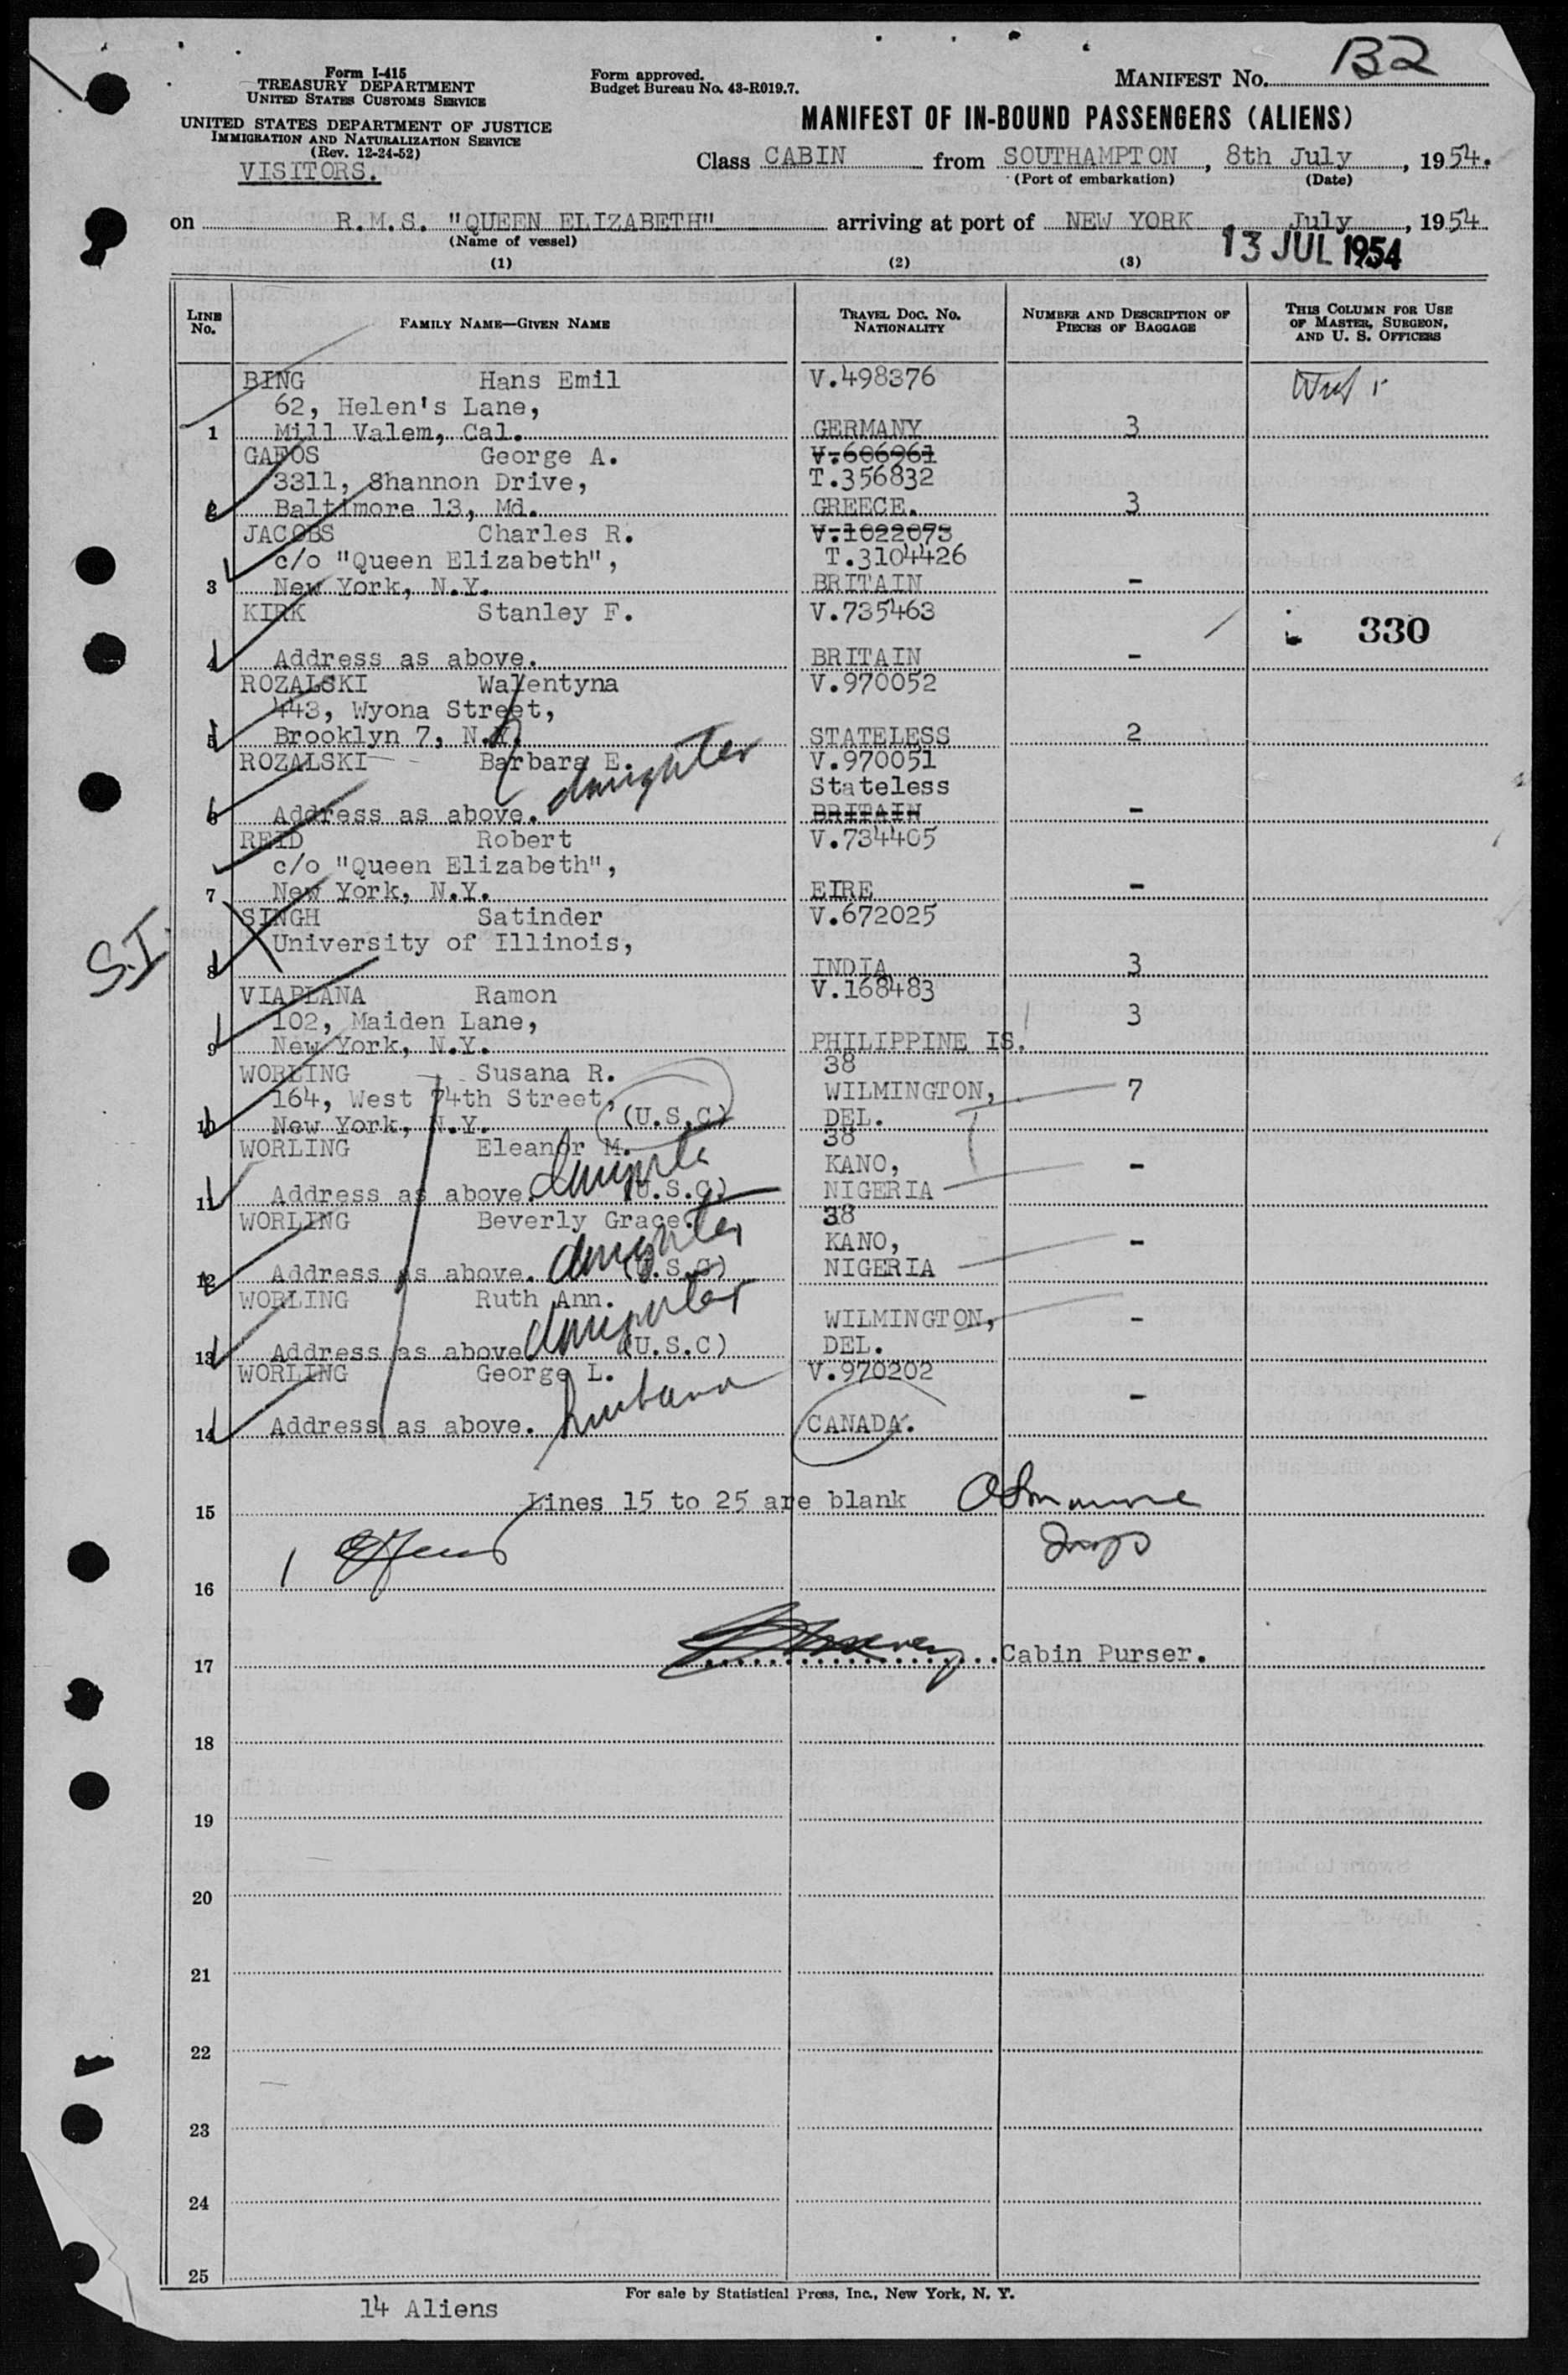 Form I-415
TREASURY DEPARTMENT
UNITED STATES CUSTOMS SERVICE
UNITED STATES DEPARTMENT OF JUSTICE
IMMIGRATION AND NATURALIZATION SERVICE
(Rev. 12-24-52)
VISITORS.
Form approved.
Budget Bureau No. 43-R019.7.
MANIFEST No. B2
MANIFEST OF IN-BOUND PASSENGERS (ALIENS)
Class CABIN from SOUTHAMPTON, 8th July, 1954.
(Port of embarkation) (Date)
on R.M.S. "QUEEN ELIZABETH" arriving at port of NEW YORK July, 1954
(Name of vessel)
13 JUL 1954
(1) (2) (3)
LINE No. FAMILY NAME—GIVEN NAME TRAVEL DOC. NO. NATIONALITY NUMBER AND DESCRIPTION OF PIECES OF BAGGAGE THIS COLUMN FOR USE OF MASTER, SURGEON, AND U. S. OFFICERS
BING Hans Emil V.498376
62, Helen's Lane,
1 Mill Valem, Cal. GERMANY 3
GAFOS George A. V.606961
3311, Shannon Drive, T.356832
2 Baltimore 13, Md. GREECE. 3
JACOBS Charles R. V.1022073
c/o "Queen Elizabeth", T.3104426
3 New York, N.Y. BRITAIN -
KIRK Stanley F. V.735463
330
4 Address as above. BRITAIN -
ROZALSKI Walentyna V.970052
443, Wyona Street,
5 Brooklyn 7, N.Y. STATELESS 2
ROZALSKI Barbara E. V.970051
daughter Stateless
6 Address as above. BRITAIN -
REID Robert V.734405
c/o "Queen Elizabeth",
7 New York, N.Y. EIRE -
SINGH Satinder V.672025
S.I. University of Illinois,
8 INDIA 3
VIAPLANA Ramon V.168483
102, Maiden Lane, 3
9 New York, N.Y. PHILIPPINE IS.
WORLING Susana R. 38
164, West 74th Street, WILMINGTON, 7
10 New York, N.Y. (U.S.C) DEL.
WORLING Eleanor M. 38
daughter KANO, -
11 Address as above. (U.S.C) NIGERIA
WORLING Beverly Grace. 38
daughter KANO, -
12 Address as above. (U.S.C) NIGERIA
WORLING Ruth Ann.
daughter WILMINGTON, -
13 Address as above (U.S.C) DEL.
WORLING George L. V.970202
husband -
14 Address as above. CANADA.
15 Lines 15 to 25 are blank
16
17 Cabin Purser.
18
19
20
21
22
23
24
25
For sale by Statistical Press, Inc., New York, N. Y.
14 Aliens